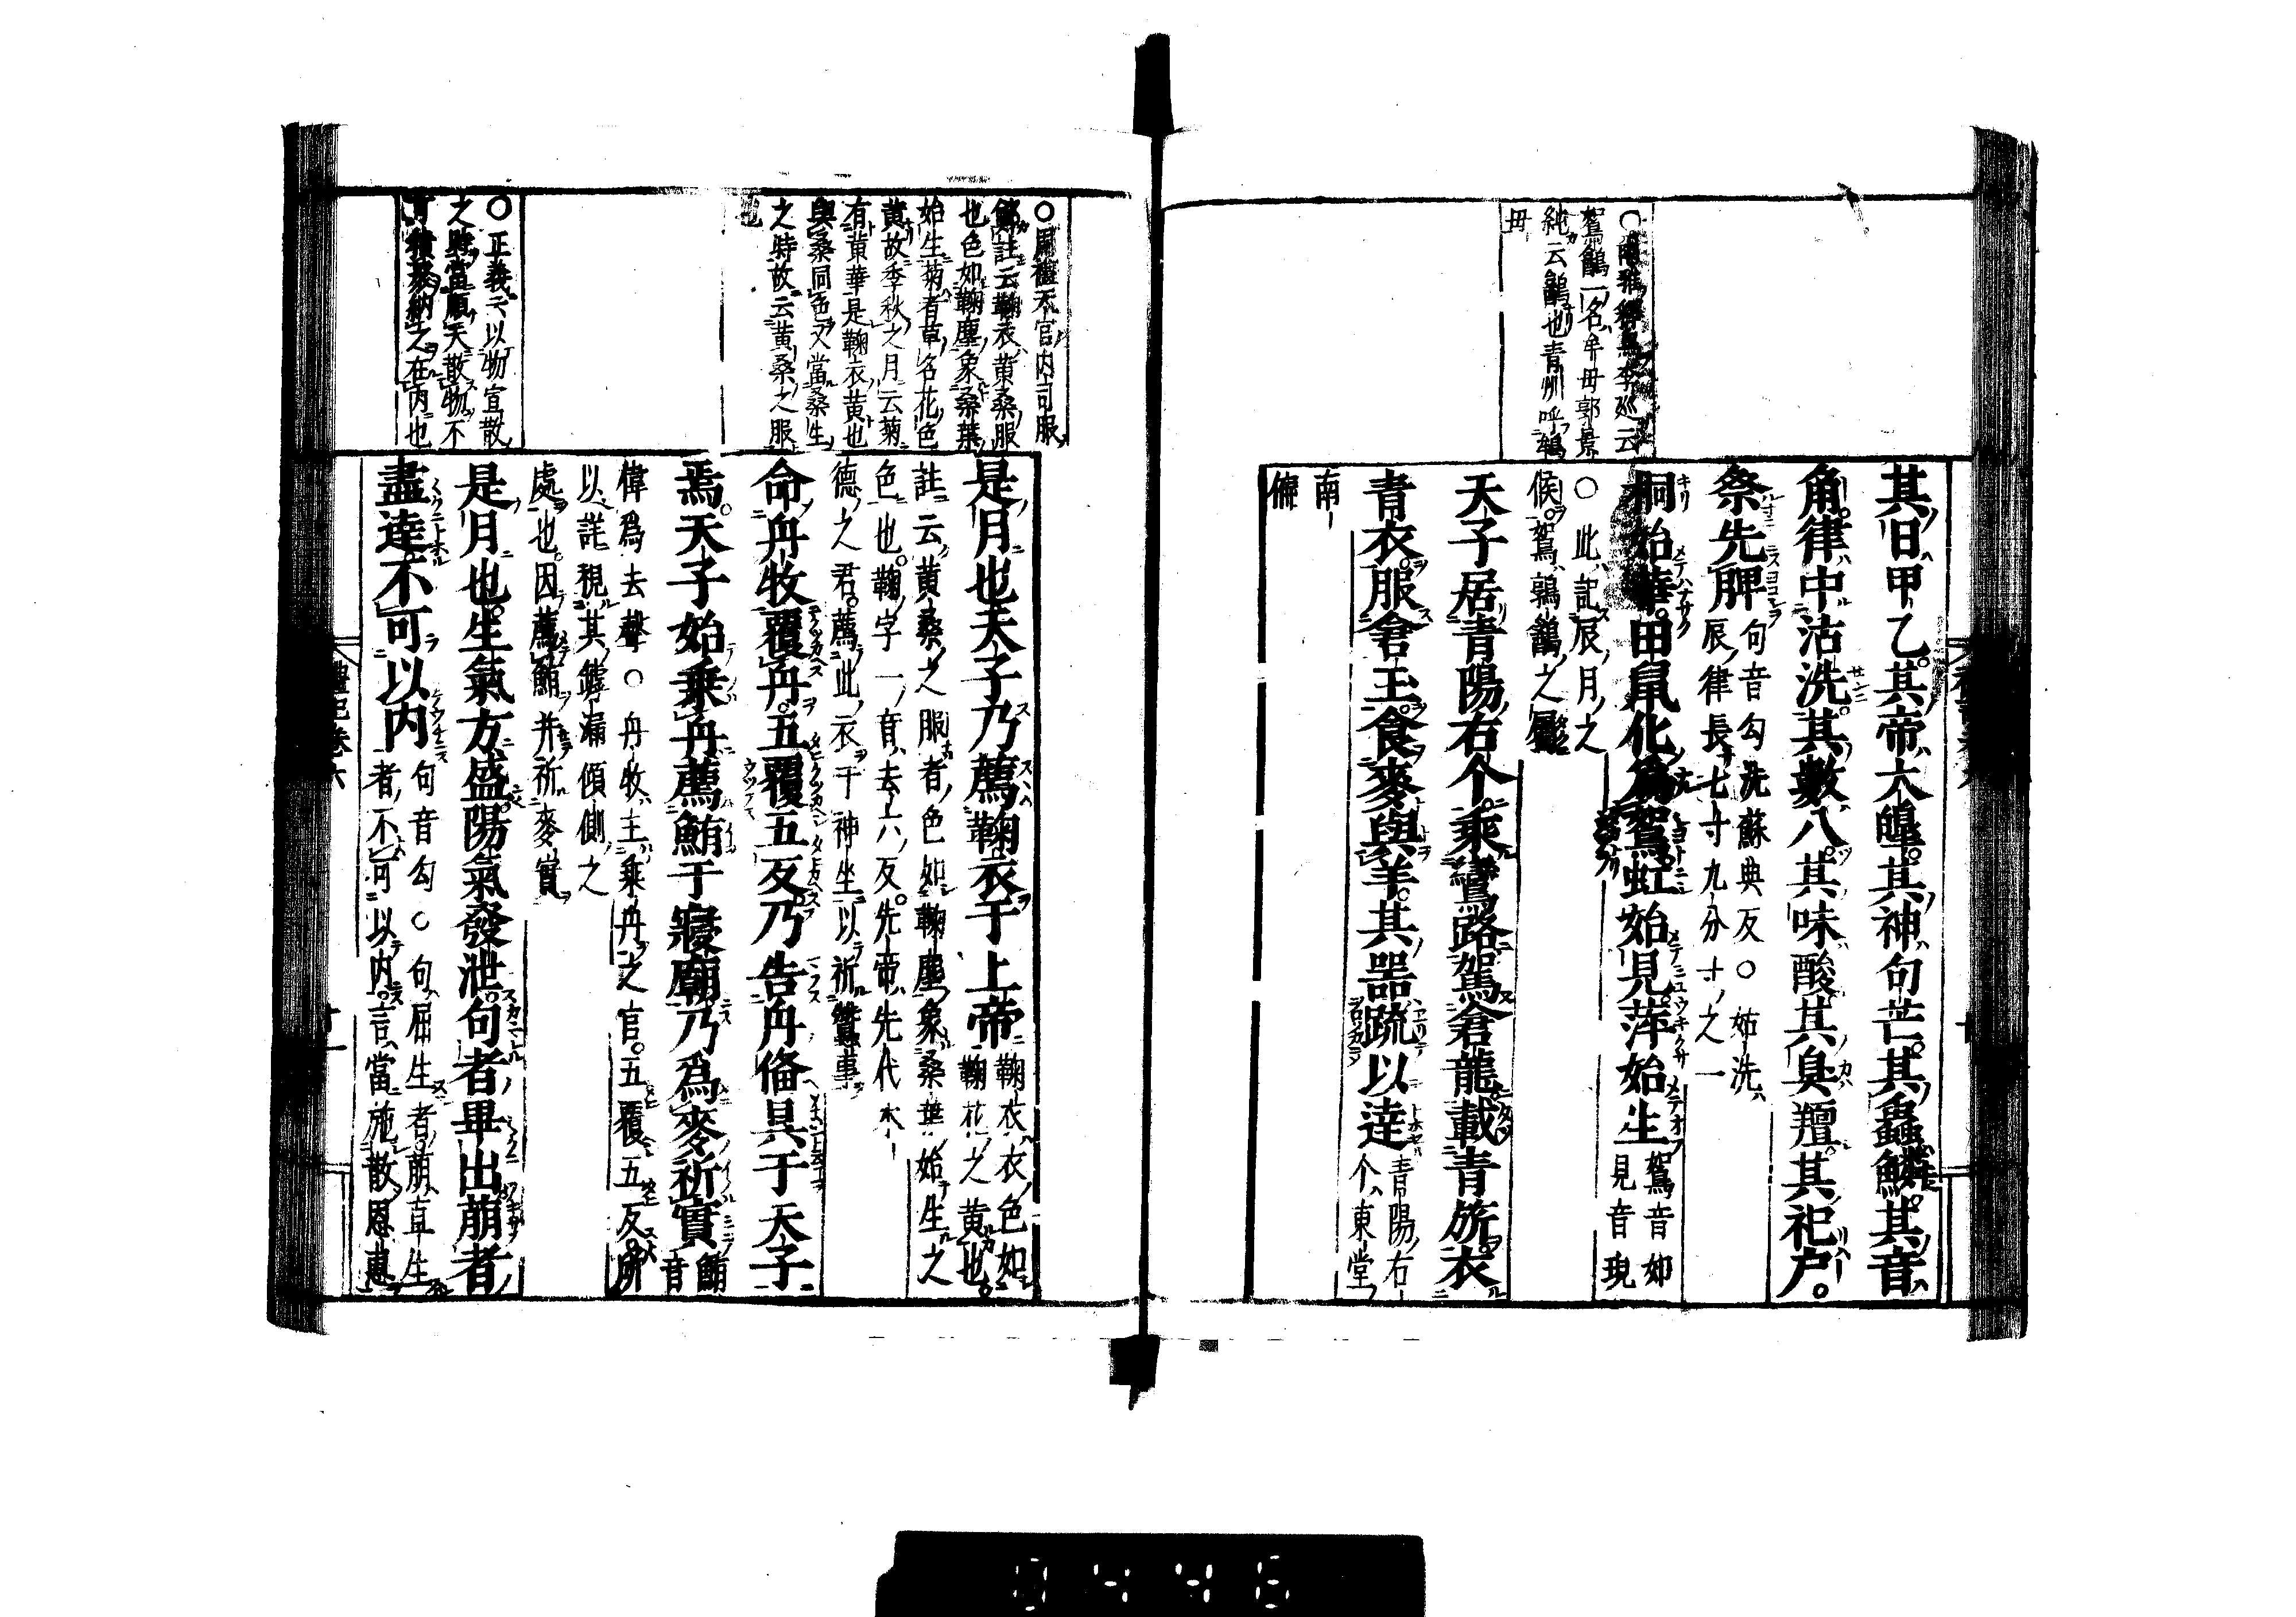 其日甲乙其帝大皥其神句芒其蟲鱗其音
角律中沽洗其數八其味酸其臭羶其祀户
祭先脾
句音勾洗蘇典反○姑洗
辰律長七寸九分十之一
桐始華田鼠化為鴽虹始見萍始生
鴽音如
見音現
○此記辰月之
候鴽鶉鷃之屬
天子居青陽右个乘鸞路駕倉龍載青旂衣
青衣服倉玉食麥與羊其器疏以達
青陽右
个東堂
南
偏
鴽鷂一名牟毋郭景
純云鷂也青州呼鷂
毋
是月也天子乃薦鞠衣于上帝
鞠衣衣色如
鞠花之黄也
註云黄桑之服者色如鞠塵象桑葉始生之
色也鞠字一音去六反先帝先代木
德之君薦此衣于神坐以祈蠶事
命舟牧覆舟五覆五反乃告舟備具于天子
焉天子始乘舟薦鮪于寢廟乃為麥祈實
鮪
音
偉為去聲○舟牧主乘舟之官五覆五反所
以詳視其罅漏傾側之
處也因薦鮪并祈麥實
是月也生氣方盛陽氣發泄句者畢出萠者
盡達不可以内
句音勾○句屈生者萠直生
者不可以内言當施散恩惠
○周禮天官内司服
鄭註云鞠衣黄桑服
也色如鞠塵象桑葉
始生菊者草名花色
黄故季秋之月云菊
有黄華是鞠衣黄也
與桑同色又當桑生
之時故云黄桑之服
也
○正義云以物宣散
之時當順天散物不
可積聚納之在内也
禮記卷六
十一
0446